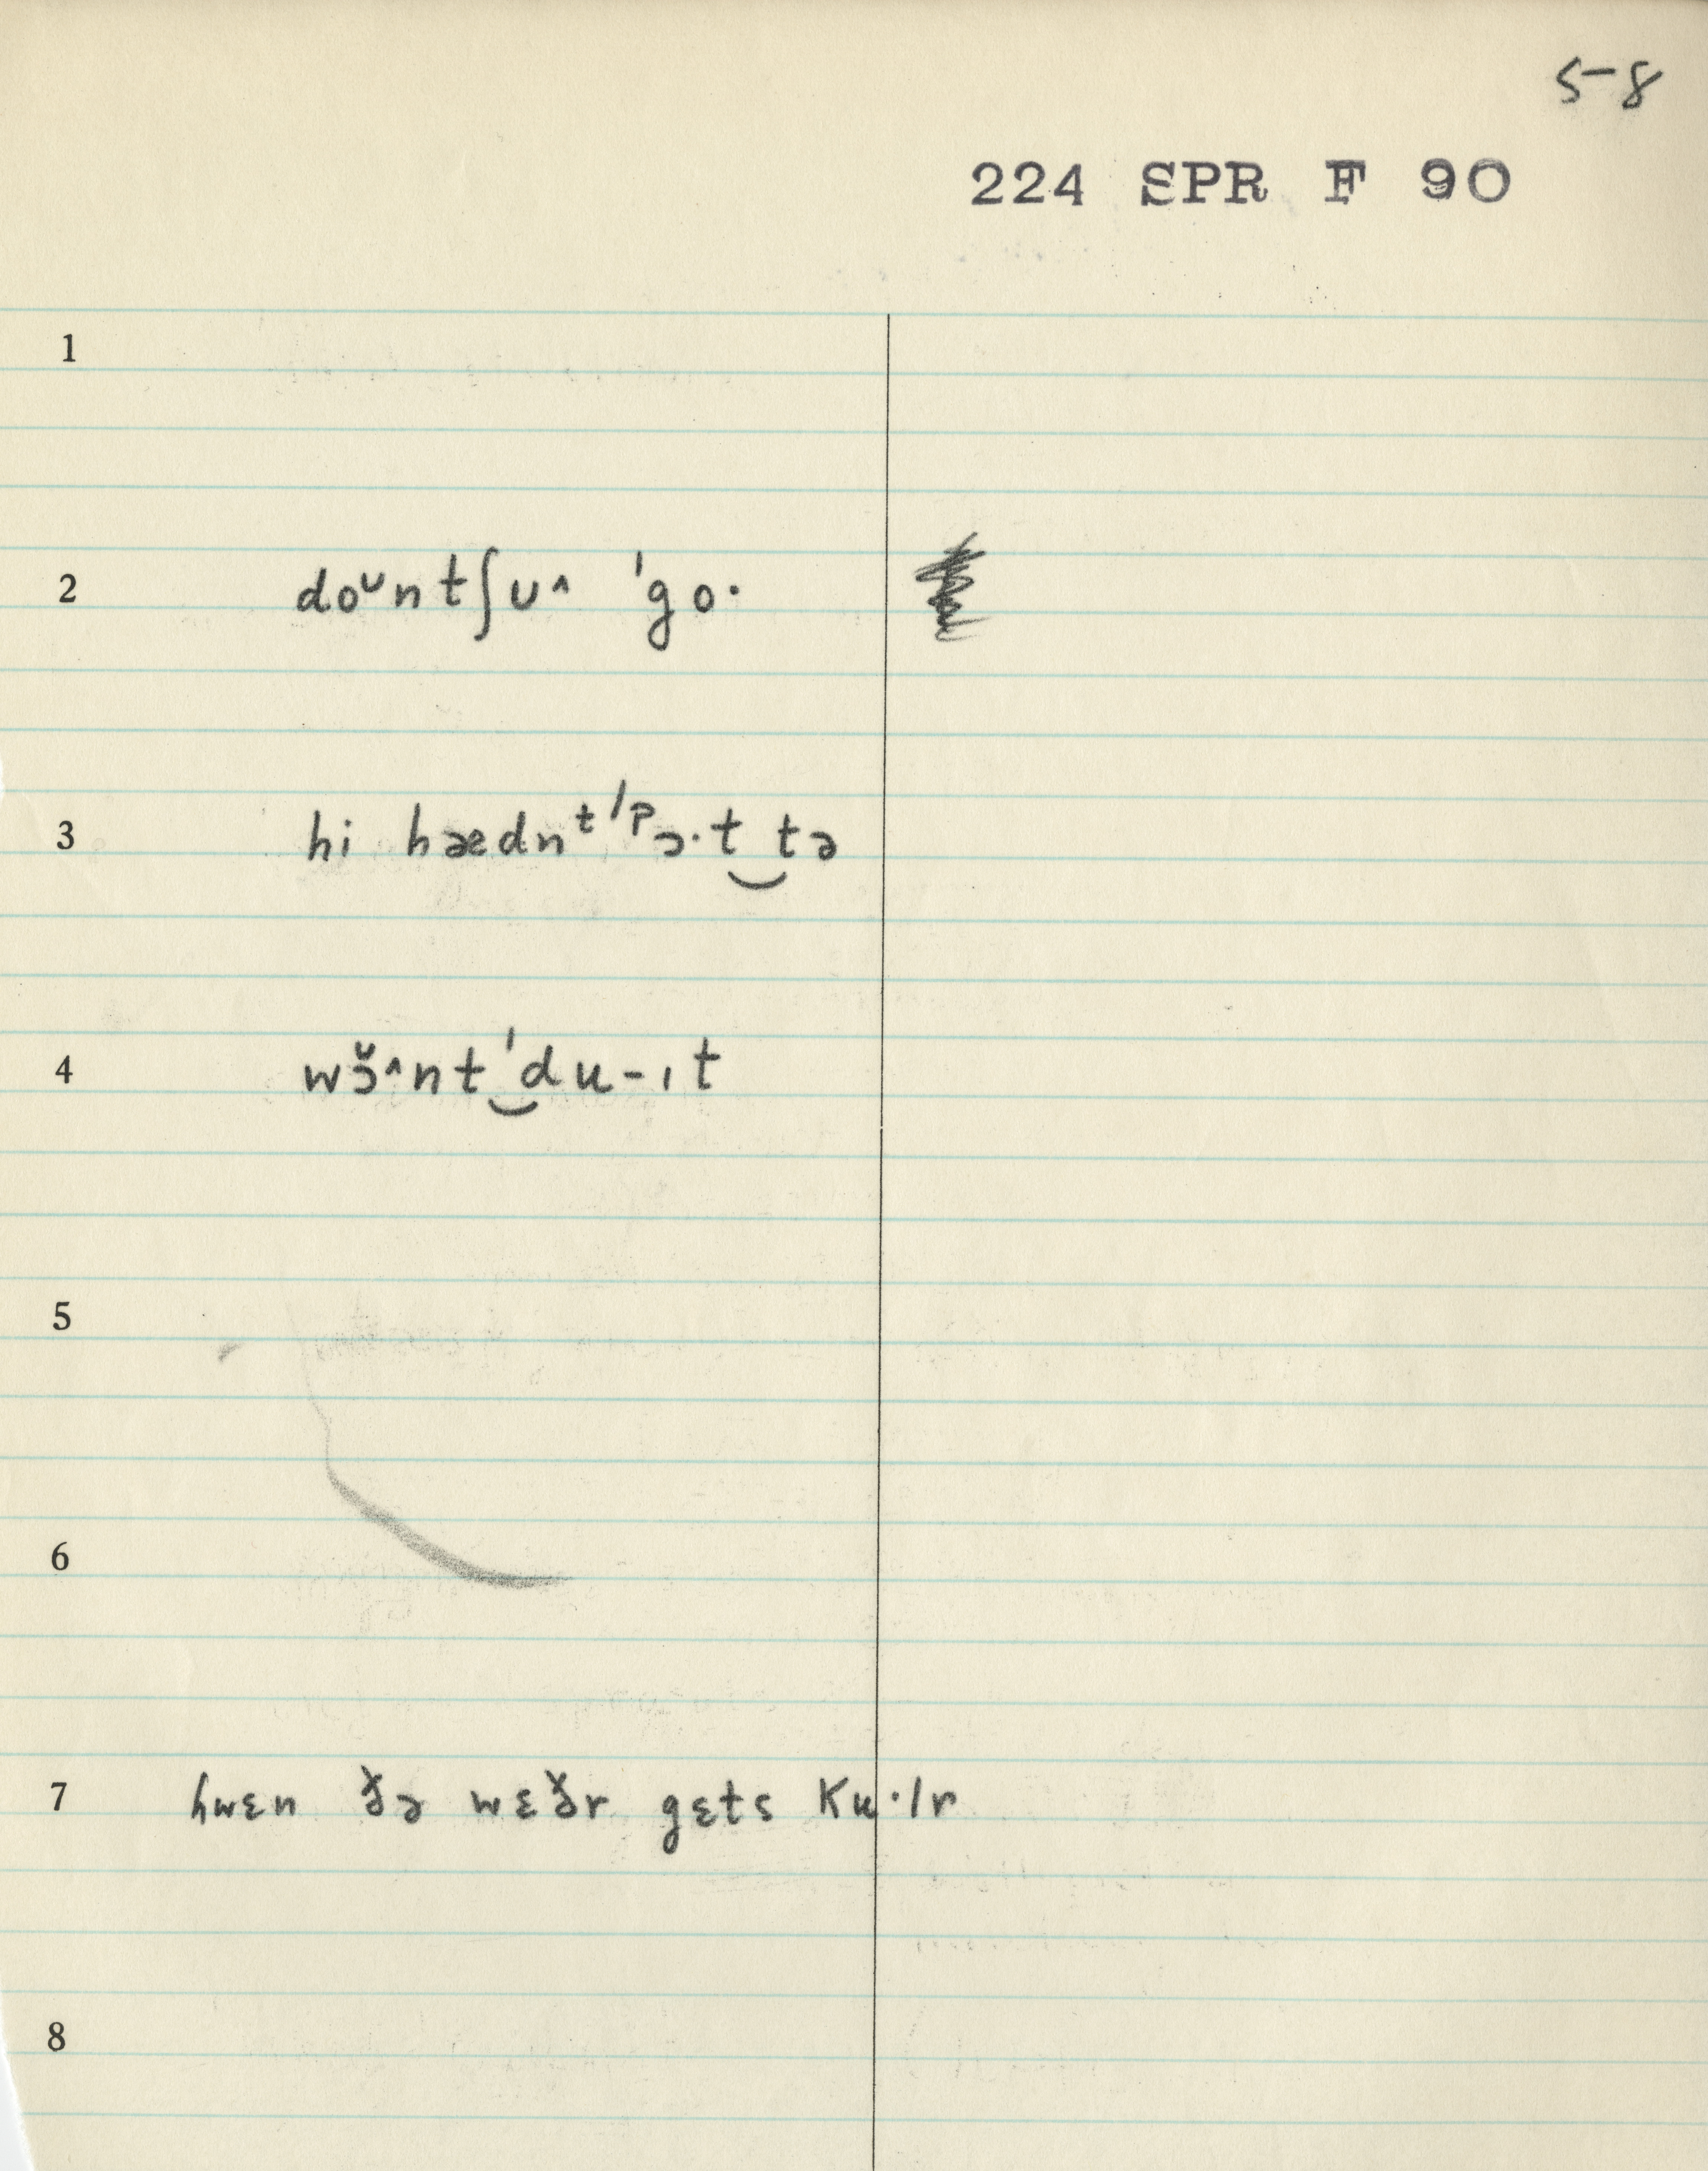 5-8
224 SPR F 90
1
2 doᴜntʃᴜ^ ˈgo·
3 hi hædnᵗ ˈpɔ·t‿tə
4 wɔ̆^nt‿ˈdu-ɪt
5
6
7 hwɛn ðə wɛðr gɛts ku·lr
8